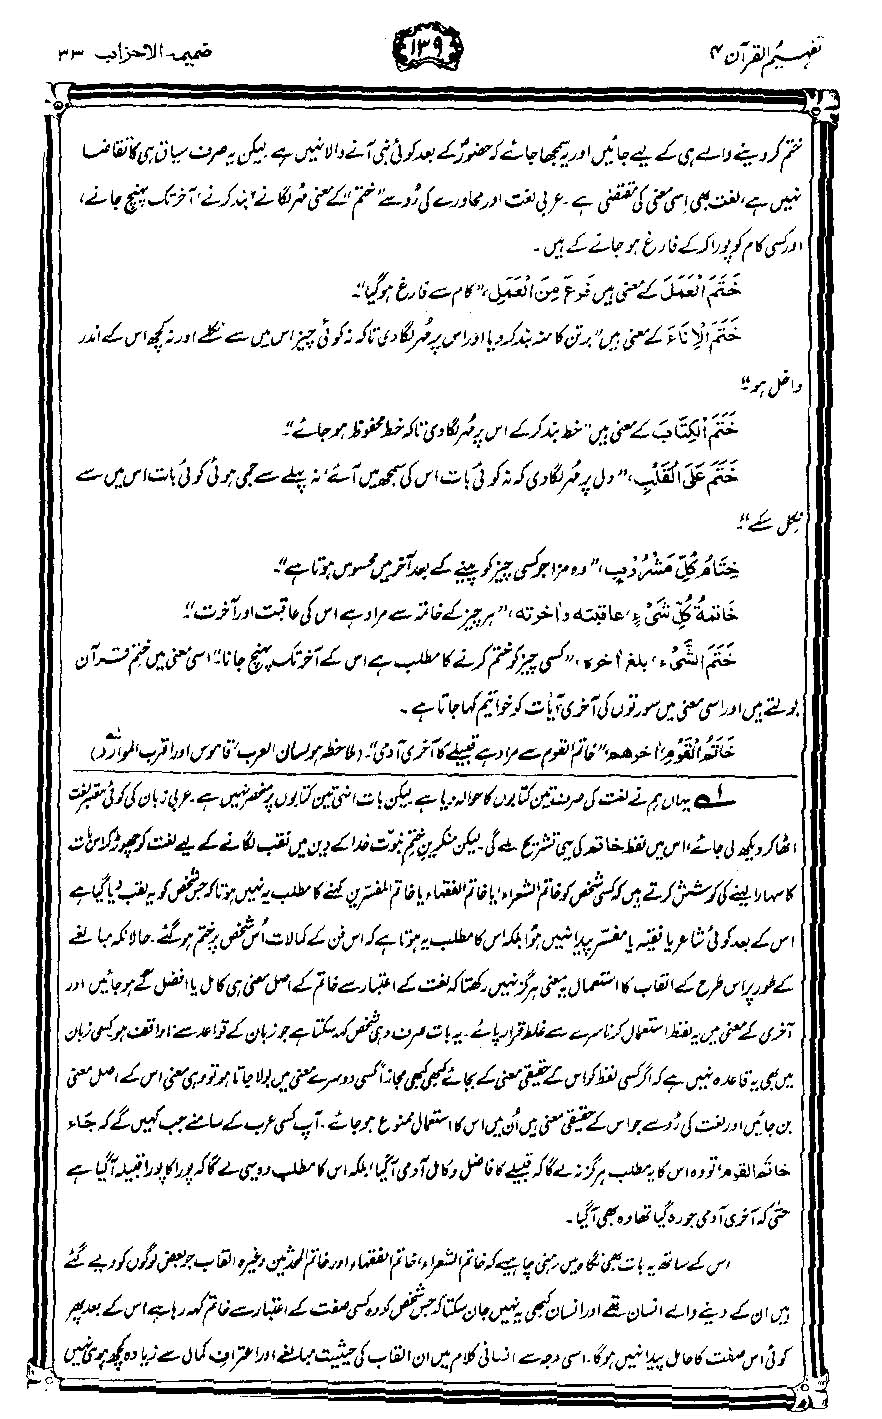 تفہیم القرآن ۴
۱۳۹
ضمیمہ الاحزاب ۳۳
ختم کر دینے والے ہی کے لیے جائیں اور یہ سمجھا جائے کہ حضورؐ کے بعد کوئی نبی آنے والا نہیں ہے لیکن یہ صرف سیاق ہی کا تقاضا
نہیں ہے، لغت بھی اِسی معنی کی مقتضی ہے۔ عربی لغت اور محاورے کی رُو سے ”ختم“ کے معنی مُہر لگانے، بند کرنے، آخر تک پہنچ جانے،
اور کسی کام کو پورا کر کے فارغ ہو جانے کے ہیں۔
خَتَمَ الْعَمَلَ کے معنی ہیں فَرَغَ مِنَ الْعَمَلِ، ”کام سے فارغ ہو گیا“۔
خَتَمَ الْاِنَاءَ کے معنی ہیں ”برتن کا منہ بند کر دیا اور اس پر مُہر لگا دی تاکہ نہ کوئی چیز اس میں سے نکلے اور نہ کچھ اس کے اندر
داخل ہو“۔
خَتَمَ الْکِتَابَ کے معنی ہیں ”خط بند کر کے اس پر مُہر لگا دی تاکہ خط محفوظ ہو جائے“۔
خَتَمَ عَلَی الْقَلْبِ، ”دل پر مُہر لگا دی کہ نہ کوئی بات اس کی سمجھ میں آئے، نہ پہلے سے جمی ہوئی کوئی بات اس میں سے
نکل سکے“۔
خِتَامُ کُلِّ مَشْرُوْبٍ، ”وہ مزا جو کسی چیز کو پینے کے بعد آخر میں محسوس ہوتا ہے“۔
خَاتِمَۃُ کُلِّ شَیْءٍ، عاقبتہ واٰخرتہ، ”ہر چیز کے خاتمہ سے مراد ہے اس کی عاقبت اور آخرت“۔
خَتَمَ الشَّیْءَ، بلغ اٰخرہ، ”کسی چیز کو ختم کرنے کا مطلب ہے اس کے آخر تک پہنچ جانا“۔ اسی معنی میں ختمِ قرآن
بولتے ہیں اور اسی معنی میں سورتوں کی آخری آیات کو خواتیم کہا جاتا ہے۔
خَاتَمُ الْقَوْمِ، اٰخرھم، ”خاتم القوم سے مراد ہے قبیلے کا آخری آدمی“۔ (ملاحظہ ہو لسان العرب، قاموس اور اقرب الموارد)
۱؎ یہاں ہم نے لغت کی صرف تین کتابوں کا حوالہ دیا ہے لیکن بات انہی تین کتابوں پر منحصر نہیں ہے۔ عربی زبان کی کوئی معتبر لغت
اٹھا کر دیکھ لی جائے، اس میں لفظ خاتم کی یہی تشریح ملے گی۔ لیکن منکرینِ ختمِ نبوّت خدا کے دین میں نقب لگانے کے لیے لغت کو چھوڑ کر اس بات
کا سہارا لینے کی کوشش کرتے ہیں کہ کسی شخص کو خاتم الشعراء، یا خاتم الفقہاء یا خاتم المفسّرین کہنے کا مطلب یہ نہیں ہوتا کہ جس شخص کو یہ لقب دیا گیا ہے
اس کے بعد کوئی شاعر یا فقیہ یا مفسّر پیدا نہیں ہوا، بلکہ اس کا مطلب یہ ہوتا ہے کہ اس فن کے کمالات اُس شخص پر ختم ہو گئے۔ حالانکہ مبالغے
کے طور پر اس طرح کے القاب کا استعمال یہ معنی ہرگز نہیں رکھتا کہ لغت کے اعتبار سے خاتم کے اصل معنی ہی کامل یا افضل کے ہو جائیں اور
آخری کے معنی میں یہ لفظ استعمال کرنا سرے سے غلط قرار پائے۔ یہ بات صرف وہی شخص کہہ سکتا ہے جو زبان کے قواعد سے ناواقف ہو کسی زبان
میں بھی یہ قاعدہ نہیں ہے کہ اگر کسی لفظ کو اس کے حقیقی معنی کے بجائے کبھی کبھی مجازاً کسی دوسرے معنی میں بولا جاتا ہو تو وہی معنی اس کے اصل معنی
بن جائیں اور لغت کی رُو سے جو اس کے حقیقی معنی ہیں اُن میں اس کا استعمال ممنوع ہو جائے۔ آپ کسی عرب کے سامنے جب کہیں گے کہ جَاء
خاتَمُ القوم، تو وہ اس کا یہ مطلب ہرگز نہ لے گا کہ قبیلے کا فاضل و کامل آدمی آگیا، بلکہ اس کا مطلب وہ یہی لے گا کہ پورا کا پورا قبیلہ آگیا ہے
حتٰی کہ آخری آدمی جو رہ گیا تھا وہ بھی آگیا۔
اس کے ساتھ یہ بات بھی نگاہ میں رہنی چاہیے کہ خاتم الشعراء، خاتم الفقہاء اور خاتم المحدثین وغیرہ القاب جو بعض لوگوں کو دیے گئے
ہیں ان کے دینے والے انسان تھے اور انسان کبھی یہ نہیں جان سکتا کہ جس شخص کو وہ کسی صفت کے اعتبار سے خاتم کہہ رہا ہے اس کے بعد پھر
کوئی اس صفت کا حامل پیدا نہیں ہوگا۔ اسی وجہ سے انسانی کلام میں ان القاب کی حیثیت مبالغے اور اعترافِ کمال سے زیادہ کچھ ہو ہی نہیں